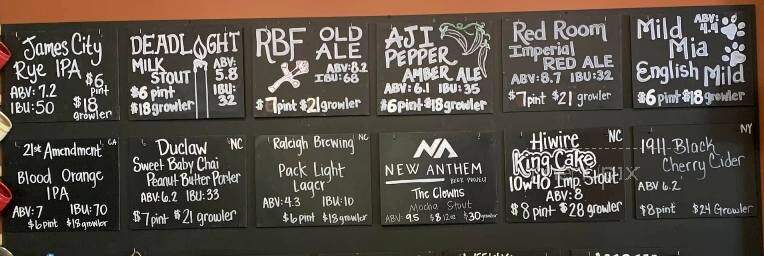 James City
Rye IPA
$6
pint
ABV: 7.2
IBU: 50
$18
growler
DEADLIGHT
MILK
STOUT
ABV:
5.8
IBU:
32
$6 pint
$18 growler
RBF OLD
ALE
ABV: 8.2
IBU: 68
$7 pint $21 growler
AJI
PEPPER
AMBER ALE
ABV: 6.1 IBU: 35
$6 pint $18 growler
Red Room
Imperial
RED ALE
ABV: 8.7 IBU: 32
$7 pint $21 growler
Mild
Mia
English Mild
ABV:
4.4
$6 pint $18 growler
21st Amendment CA
Blood Orange
IPA
ABV: 7 IBU: 70
$6 pint $18 growler
Duclaw NC
Sweet Baby Chai
Peanut Butter Porter
ABV: 6.2 IBU: 33
$7 pint $21 growler
Raleigh Brewing NC
Pack Light
Lager
ABV: 4.3 IBU: 10
$6 pint $18 growler
NA
NEW ANTHEM
BEER PROJECT
The Clowns
Mocha Stout
ABV: 9.5 $8 12oz $30 growler
Hiwire NC
King Cake
10w40 Imp. Stout
ABV: 8
$8 pint $28 growler
NY
1911 - Black
Cherry Cider
ABV 6.2
$8 pint $24 Growler